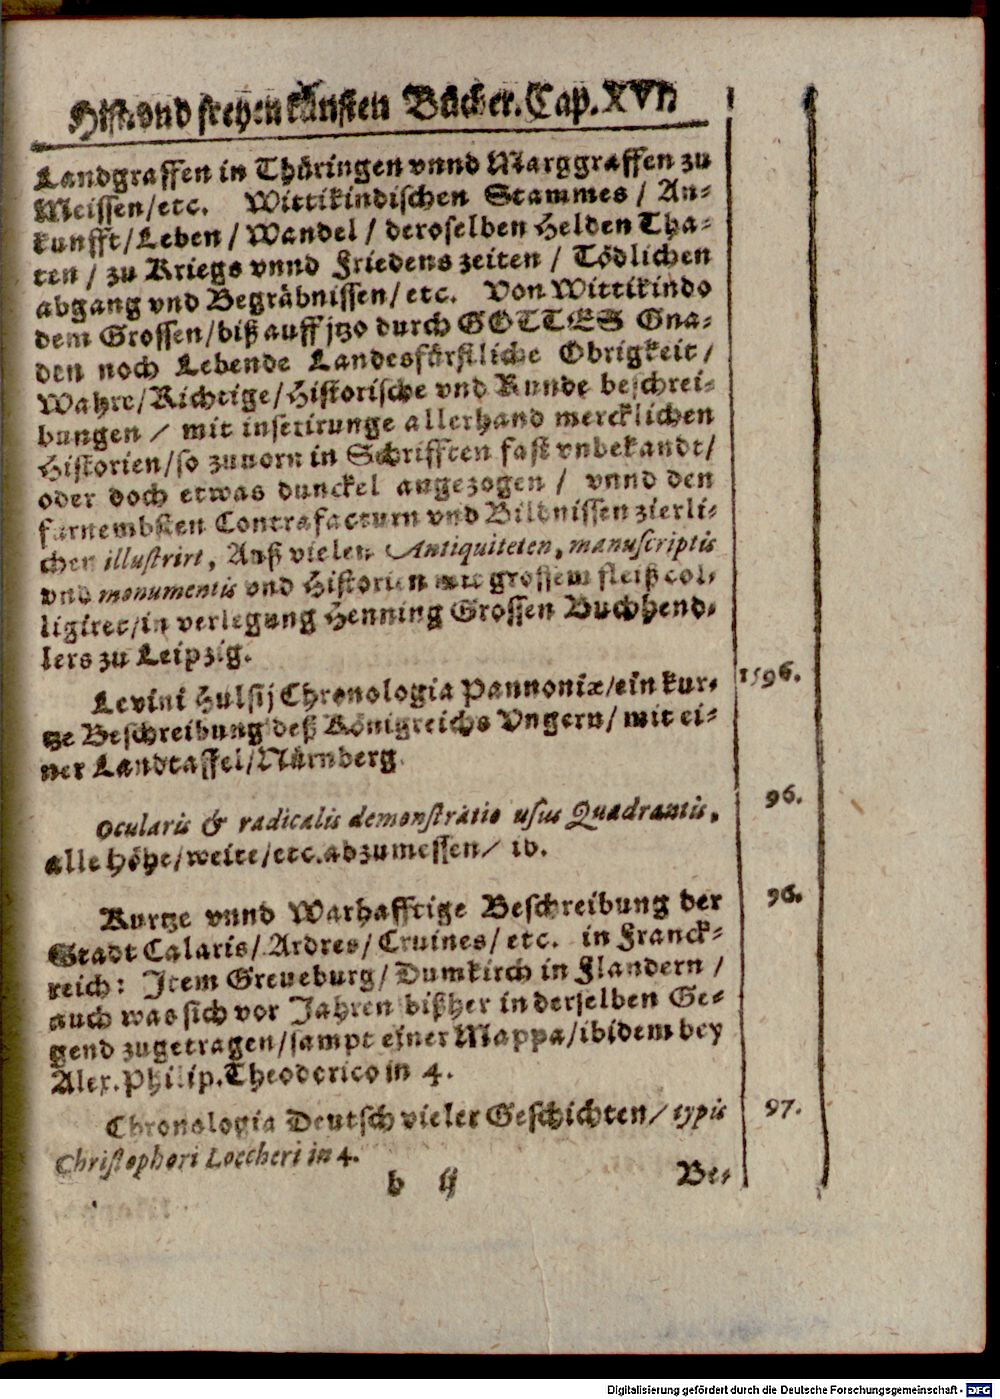 Hist. vnd freyen künsten Bücher. Cap. XVII
Landgraffen in Thüringen vnnd Marggraffen zu
Meissen/etc. Wittikindischen Stammes / An-
kunfft/Leben / Wandel / deroselben Helden Tha-
ten / zu Kriegs vnnd Friedens zeiten / Tödlichen
abgang vnd Begräbnissen/ etc. Von Wittikindo
dem Grossen/biß auff jtzo durch GOTTES Gna-
den noch Lebende Landesfürstliche Obrigkeit/
Wahre/Richtige/Historische vnd Runde beschrei-
bungen / mit insetirunge allerhand mercklichen
Historien/so zuuorn in Schrifften fast vnbekandt/
oder doch etwas dunckel angezogen / vnnd den
fürnembsten Contrafacturn vnd Bildnissen zierli-
chen illustrirt, Auß vielen Antiquiteten, manuscriptis
vnd monumentis vnd Historien mit grossem fleiß col-
ligiret/in verlegung Henning Grossen Buchhend-
lers zu Leipzig.
Levini Hulsij Chronologia Pannoniæ/ein kur- 1596.
tze Beschreibung deß Königreichs Vngern/ mit ei-
ner Landtaffel/Nürnberg.
Ocularis & radicalis demonstratio usus Quadrantis, 96.
alle Höhe/weite/etc.abzumessen/ ib.
Kurtze vnnd Warhafftige Beschreibung der 96.
Stadt Calaris/ Ardres/ Cruines/ etc. in Franck-
reich: Item Greueburg/Dumkirch in Flandern /
auch was sich vor Jahren bißher in derselben Ge-
gend zugetragen/sampt einer Mappa/ibidem bey
Alex. Philip. Theoderico in 4.
Chronologia Deutsch vieler Geschichten/ typis 97.
Christophori Loecheri in 4.
b ij Be-
Digitalisierung gefördert durch die Deutsche Forschungsgemeinschaft - DFG